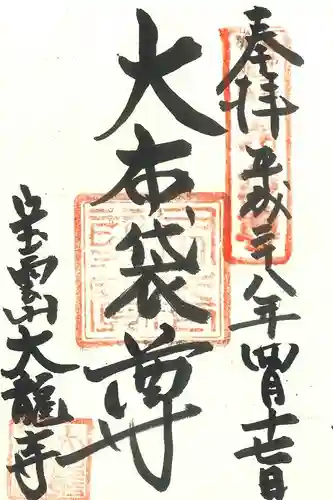 奉拝
平成二十八年四月十七日
大布袋尊
大龍寺